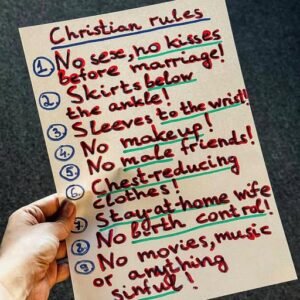 Christian rules
1. No sex, no kisses
before marriage!
2. Skirts below
the ankle!
3. Sleeves to the wrist!
4. No makeup!
5. No male friends!
6. Chest-reducing
clothes!
7. Stay-at-home wife
8. No byrth control!
9. No movies, music
or anything
sinful!